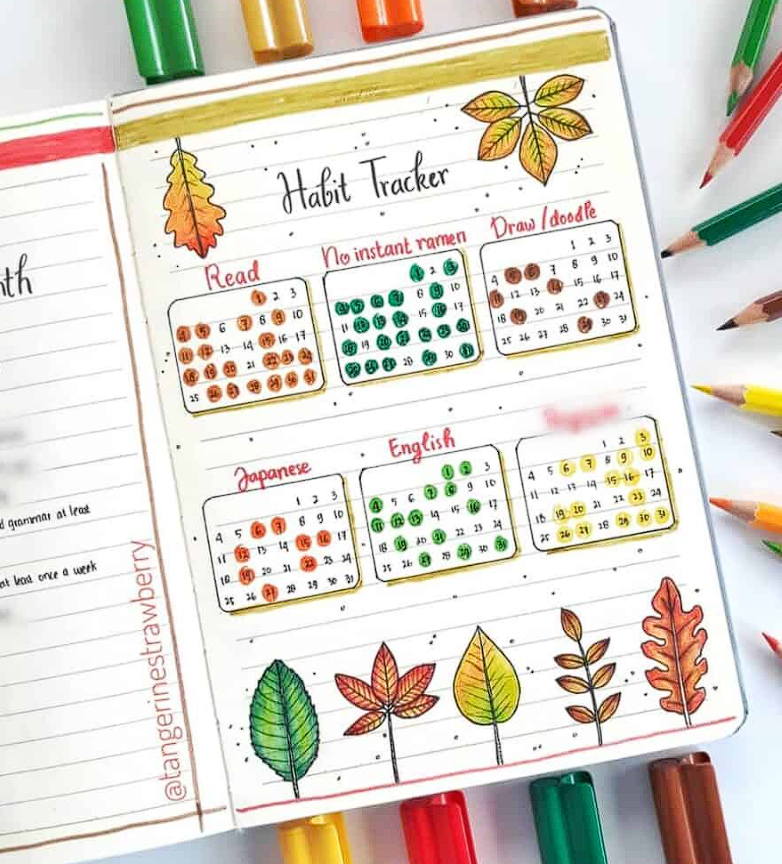 nth
d grammar at least
at least once a week
@tangerinestrawberry
Habit Tracker
Read
1 2 3
4 5 6 7 8 9 10
11 12 13 14 15 16 17
18 19 20 21 22 23 24
25 26 27 28 29 30 31
No instant ramen
1 2 3
4 5 6 7 8 9 10
11 12 13 14 15 16 17
18 19 20 21 22 23 24
25 26 27 28 29 30 31
Draw/doodle
1 2 3
4 5 6 7 8 9 10
11 12 13 14 15 16 17
18 19 20 21 22 23 24
25 26 27 28 29 30 31
Japanese
1 2 3
4 5 6 7 8 9 10
11 12 13 14 15 16 17
18 19 20 21 22 23 24
25 26 27 28 29 30 31
English
1 2 3
4 5 6 7 8 9 10
11 12 13 14 15 16 17
18 19 20 21 22 23 24
25 26 27 28 29 30 31
1 2 3
4 5 6 7 8 9 10
11 12 13 14 15 16 17
18 19 20 21 22 23 24
25 26 27 28 29 30 31